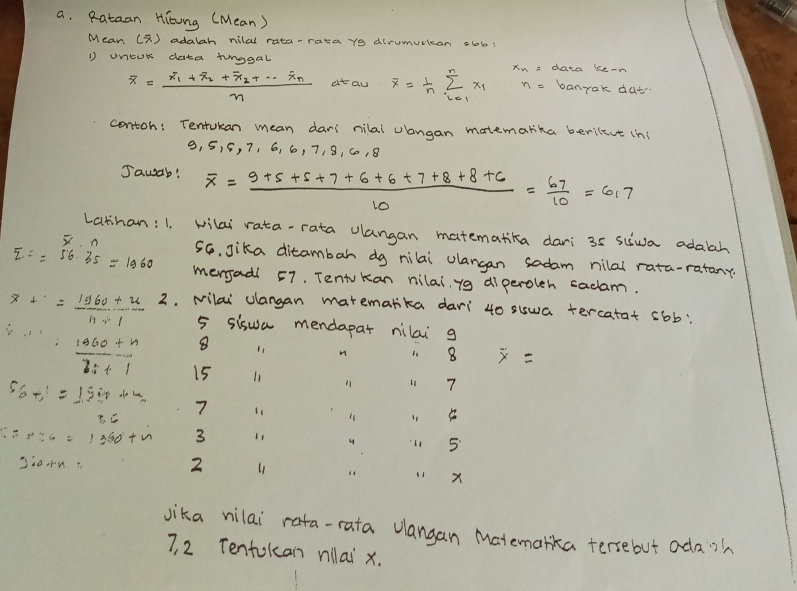 a. Rataan Hitung (Mean)
Mean (x̄) adalah nilai rata-rata yg dirumuskan sbb:
1) untuk data tunggal
x̄ = x̄₁ + x̄₂ + x̄₂ + ... x̄n / n atau x̄ = 1/n Σ x₁ n i=1
xn = data ke-n
n = banyak dat
contoh: Tentukan mean dari nilai ulangan matematika berikut ini
9, 5, 5, 7, 6, 6, 7, 8, 6, 8
Jawab: x̄ = 9+5+5+7+6+6+7+8+8+6 / 10 = 67/10 = 6,7
Latihan: 1. Nilai rata-rata ulangan matematika dari 35 siswa adalah
56. Jika ditambah dg nilai ulangan sadam nilai rata-ratany
menjadi 57. Tentukan nilai yg diperoleh sadam.
x̄ . n
= 56 . 35 = 1960
= 1960 + n / n + 1
1960 + n / 35 + 1
1960 + n
2. Nilai ulangan matematika dari 40 siswa tercatat sbb:
5 siswa mendapat nilai 9
8 " " " 8 x̄ =
15 " " " 7
7 " " " 6
3 " " " 5
2 " " " x
Jika nilai rata-rata ulangan Matematika tersebut adalah
7,2 Tentukan nilai x.